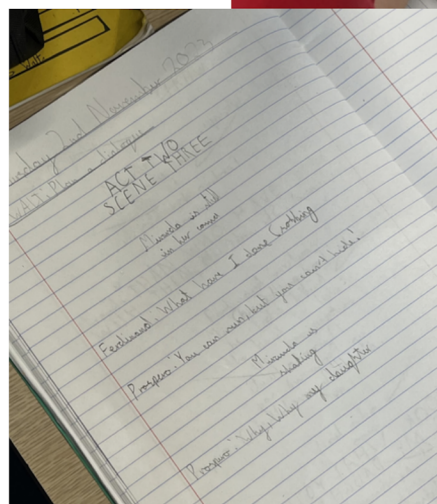 2nd November 2023
WALT: Plan a dialogue
ACT TWO
SCENE THREE
Miranda is ill
in her
Ferdinand: What have I done (sobbing
Prospero: You can run, but you can't hide!
Miranda is
Prospero: Why, Why my daughter